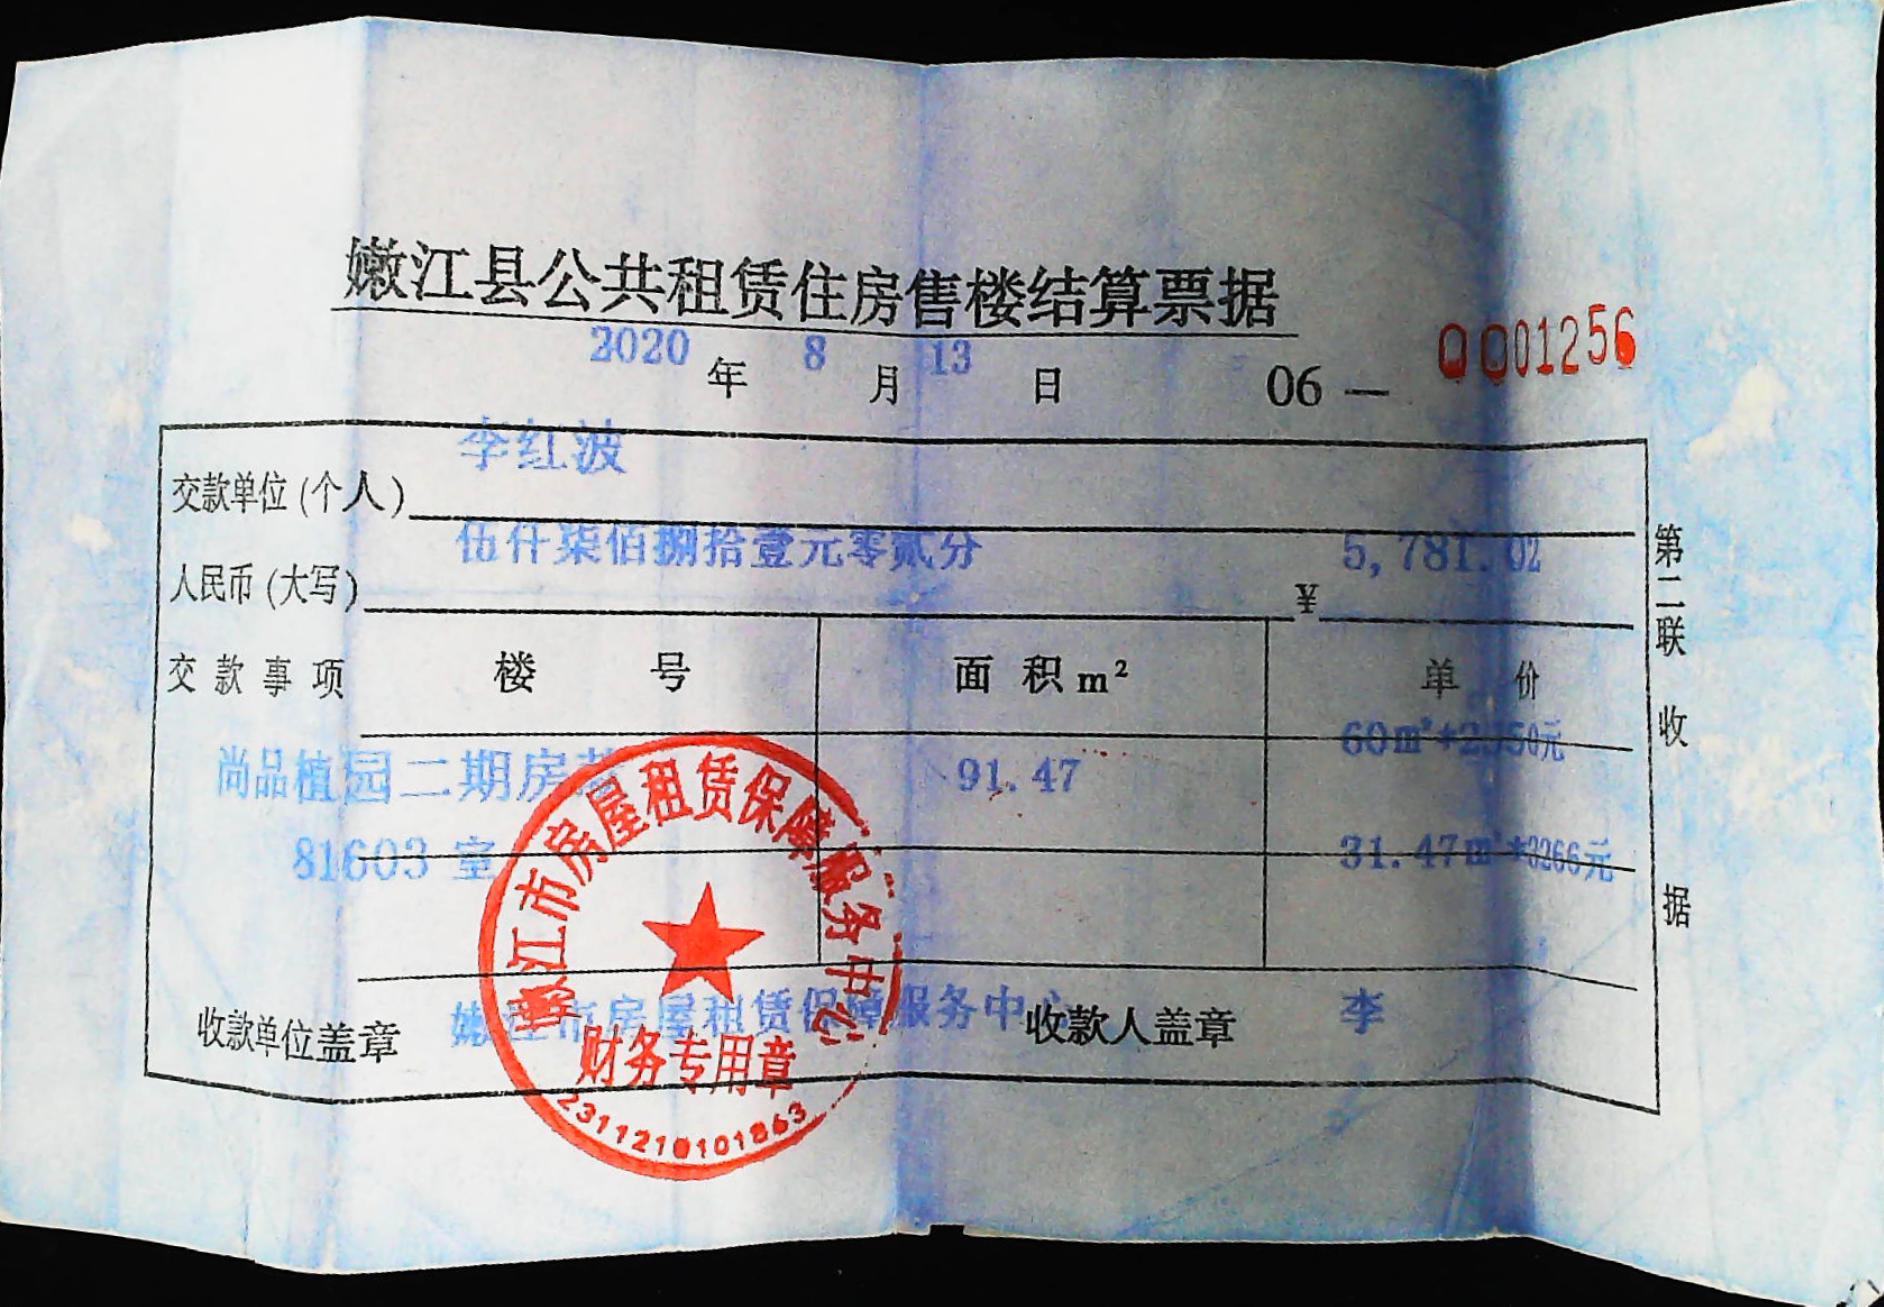 嫩江县公共租赁住房售楼结算票据
2020 年 8 月 13 日 06 — 0001256
交款单位(个人) 李红波
人民币(大写) 伍仟柒佰捌拾壹元零贰分 ¥ 5,781.02
交款事项 楼 号 面 积 m² 单 价
尚品植园二期房 91.47 60m²*2350元
81603 室 31.47m²*3266元
收款单位盖章 嫩江市房屋租赁保障服务中心 收款人盖章 李
第二联 收 据
嫩江市房屋租赁保障服务中心
财务专用章
2311210101863